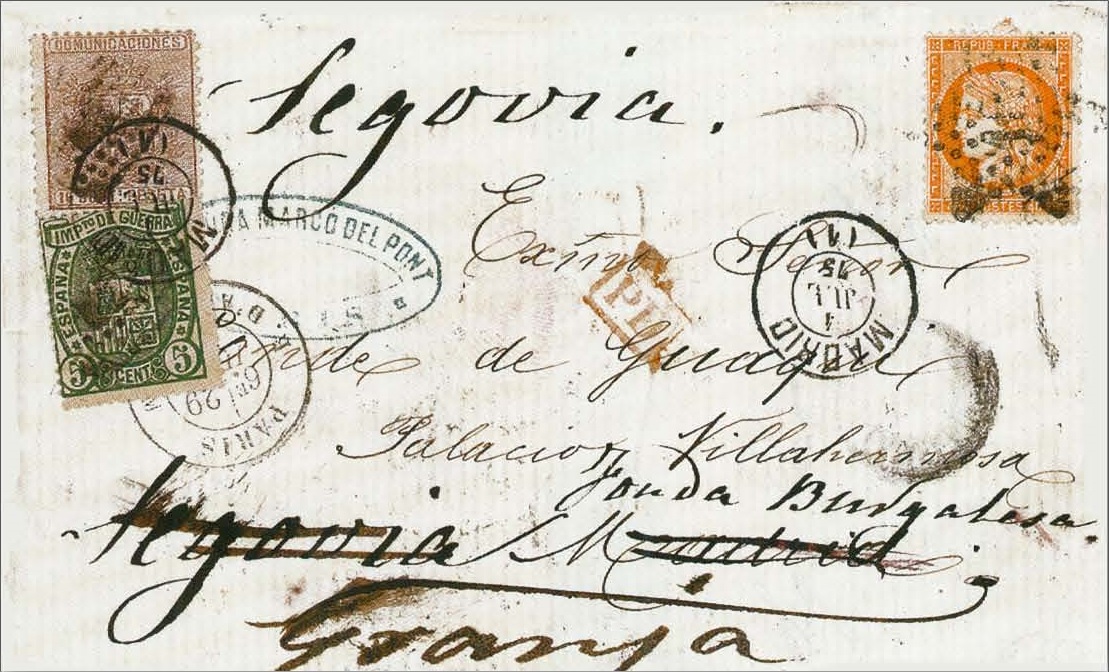 COMUNICACIONES
REPUB. FRANC
Segovia.
IMPTO DE GUERRA
ESPAÑA
ESPAÑA
5 CENT. 5
MARCO DEL PONT
PARIS
29
Exmo Señor
PD
MADRID
1 JUL
75
(1A)
75
(1A)
Conde de Guaqui
Palacio Villahermosa
Fonda Burgalesa
Segovia Madrid
Granja